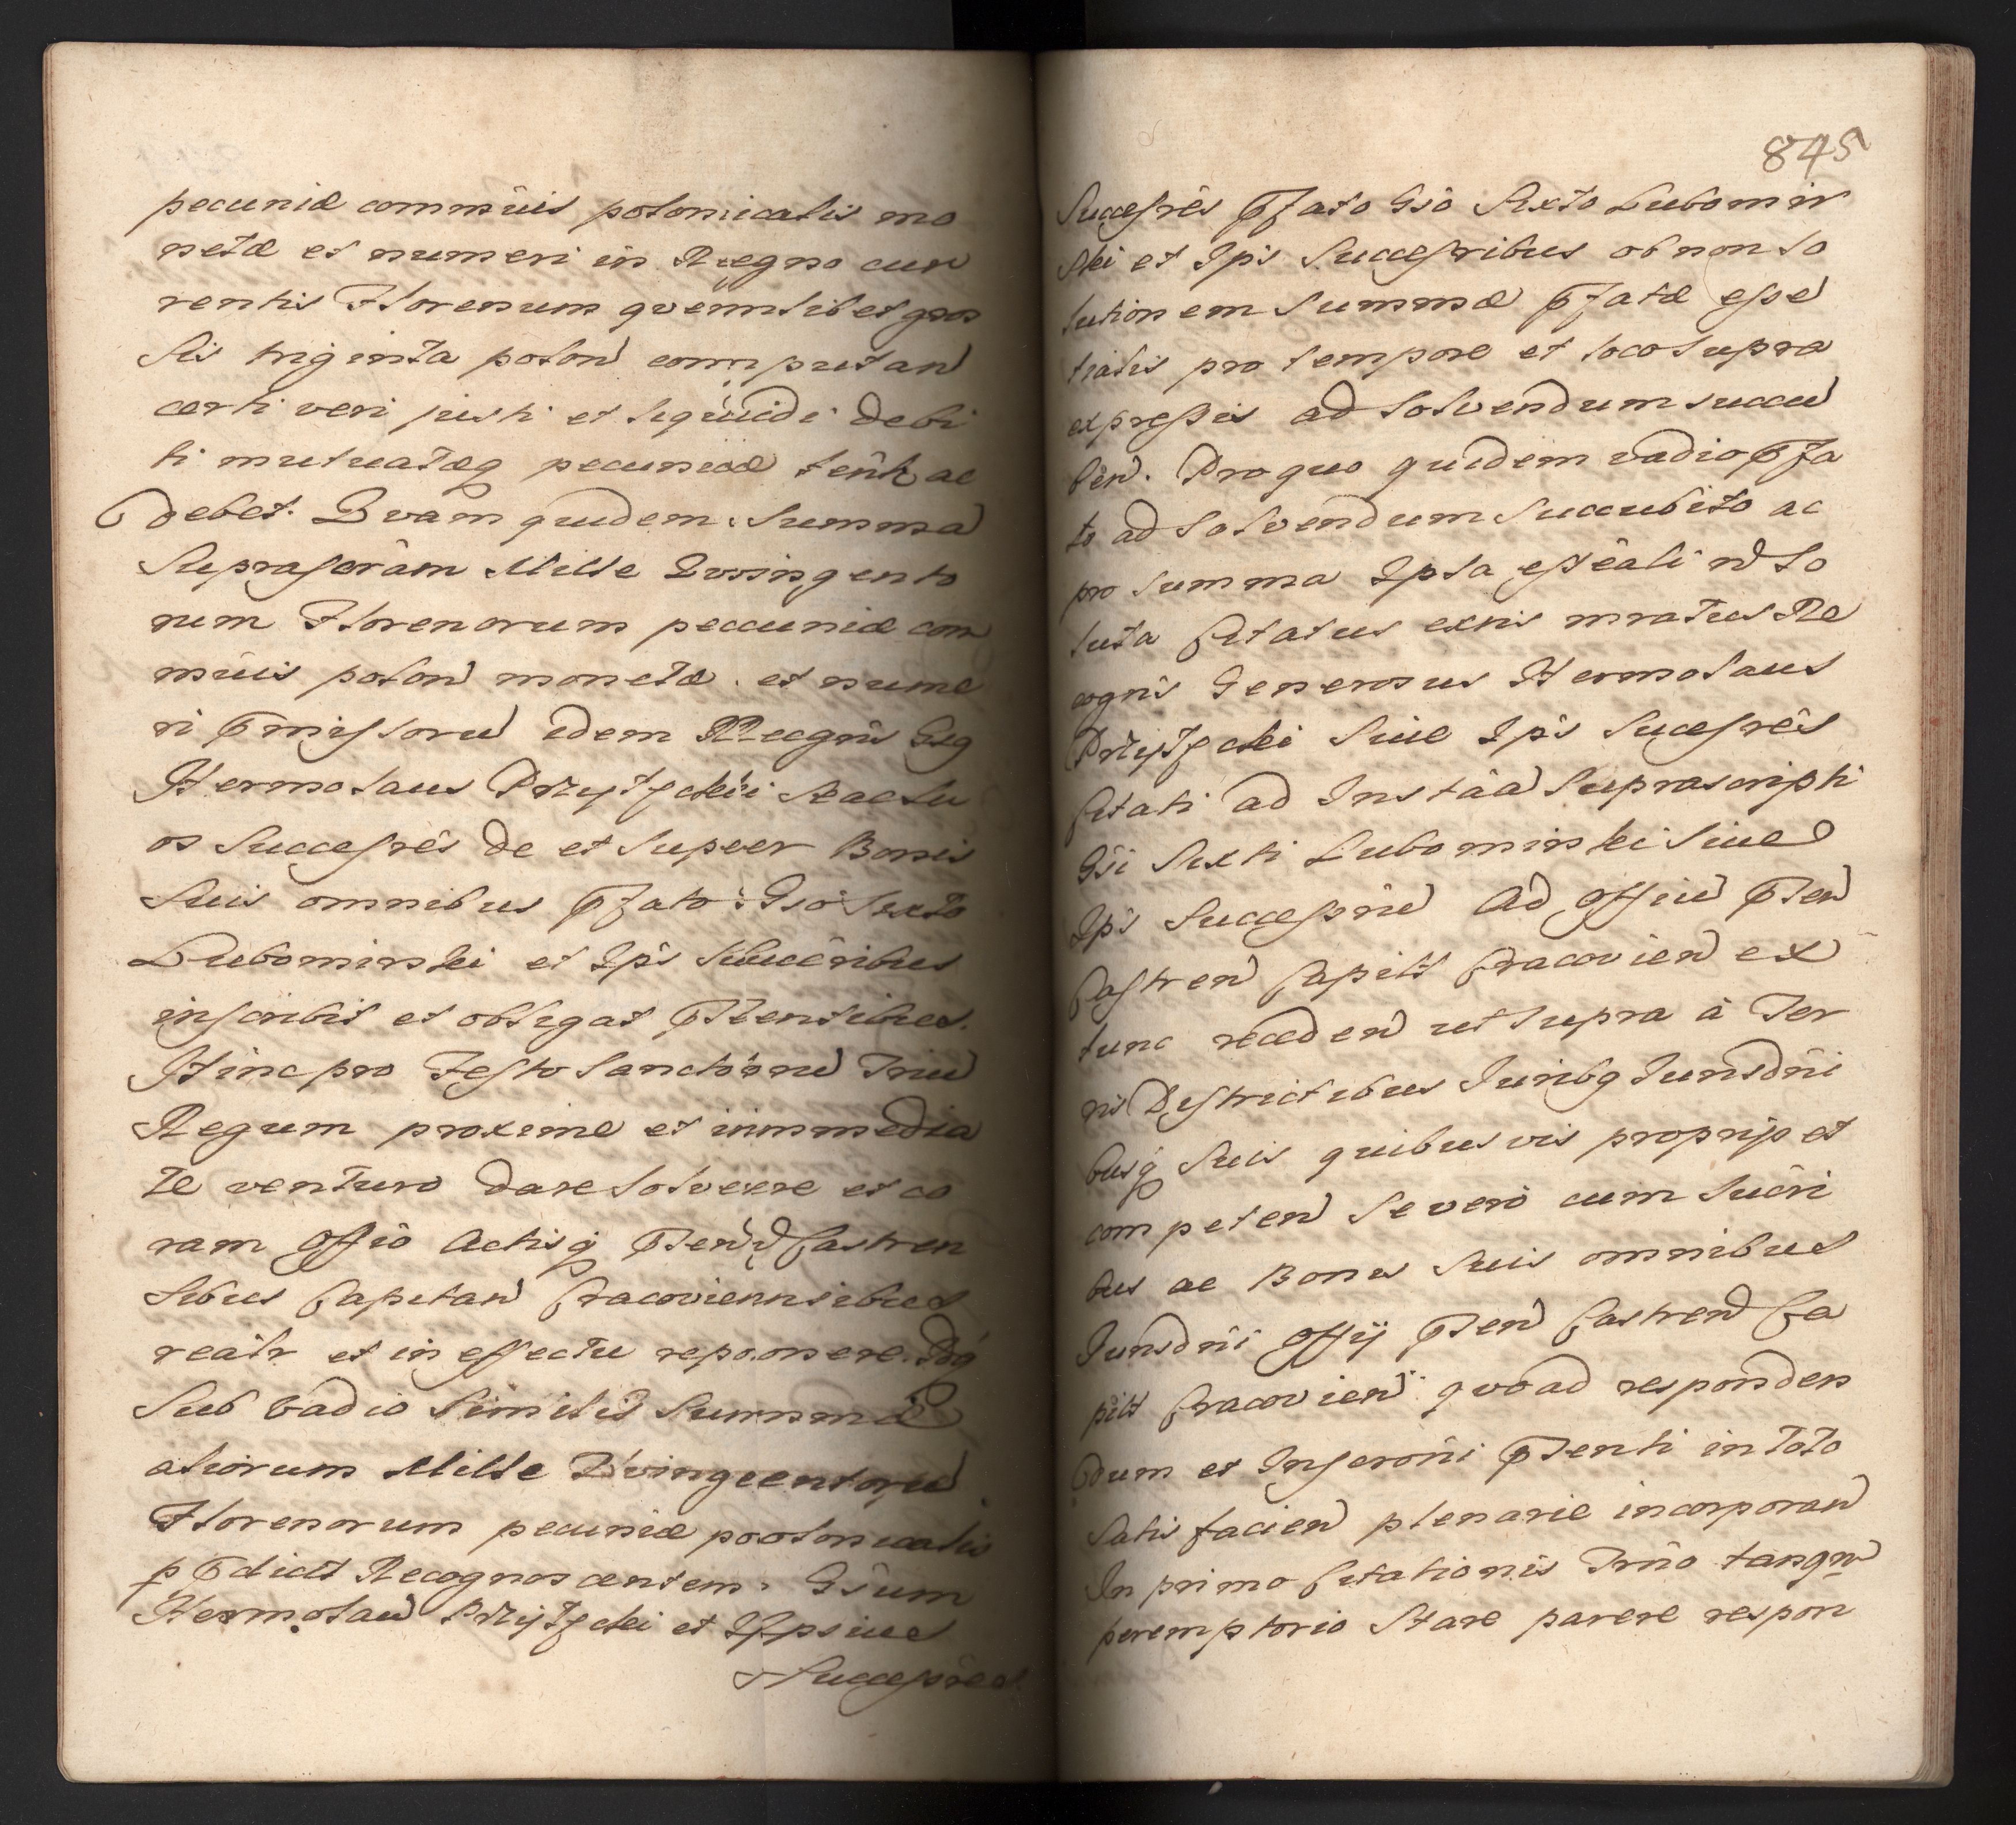 pecuniæ commūis polonicalis mo
netæ et numeri in Regno cur
rentis Florenum qvemlibet gros
sis triginta polon computan
certi veri justi et liqüidi debi
ti mutuatæq pecuniæ tent ac
debet. Qvam quidem Summa
Suprascrâm Mille Qvingento
rum Florenorum peccuniæ com
mūis polon monetæ et nume
ri pmissoru idem Recogns Gsg
Hermolaus Przyjfcki Seactu
os Succesrês de et super Bonis
Suis omnibus pfato Gsô Sexto
Lubomirski et Ipŝ Succêribus
inscribit et obligat pſtentibus.
Hinc pro Festo Sanctôru Triu
Regum proxime et immedia
te venturo dare solvere et co
ram Offiô Actisq pſten Castren
sibus Capitan Cracoviennsibus
reâlr et in effectu reponere.
Sub vadio Similis Summæ
aliorum Mille Qvingentoru
Florenorum pecuniæ polonicalis
p pdict Recognoscentem Gŝum
Hermolau Przyjfcki et Ipsius
Succesrês
845
Succesrês pfato Gsô Sixto Lubomir
ski et Ipŝ Succesribus ob non so
lutionem Summæ pfatæ essen
tialis pro tempore et loco supra
expressis ad solvendum succu
ben. Pro quo quidem vadio pfa
to ad Solvendum Succubito ac
pro Summa Ipsa essêali nd so
luta Citatus exnŝ mratus Re
cognŝ Generosus Hermolaus
Przyjfcki Sive Ipŝ Sucesrês
Citati ad Instâa Suprascripti
Gŝi Sixti Lubomirski Sive
Ipŝ Succesrū Ad Offiu pſten
Castren Capitt Cracovien ex
tunc receden ut supra à Ter
ris Districtibus Juribq Jurisdni
busq Suis quibusvis proprijs et
competen Se verò cum Sucri
bus ac Bonis Suis omnibus
Jurisdni Offij pſten Castren Ca
pitt Cracovien qvoad responden
dum et Inscrôni pſtenti in toto
Satisfacien plenarie incorporan
In primo Citationis Trno tanqv
peremptorio Stare parere respon